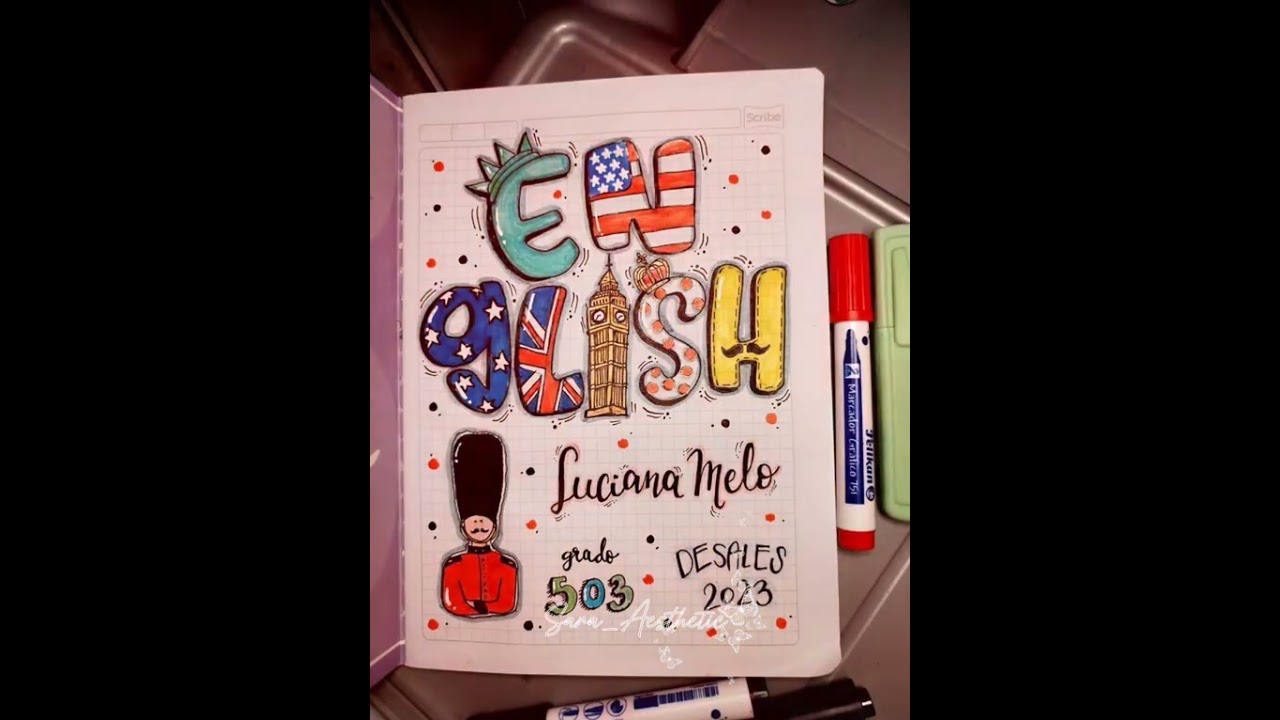 Scribe
EN
gLISH
Luciana Melo
grado
503
DESALES
2023
Sara_Aesthetic
Pelikan
Marcador Gráfico 751